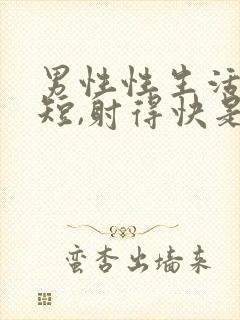 男性性生活
短,射得快是
蛮杏出墙来